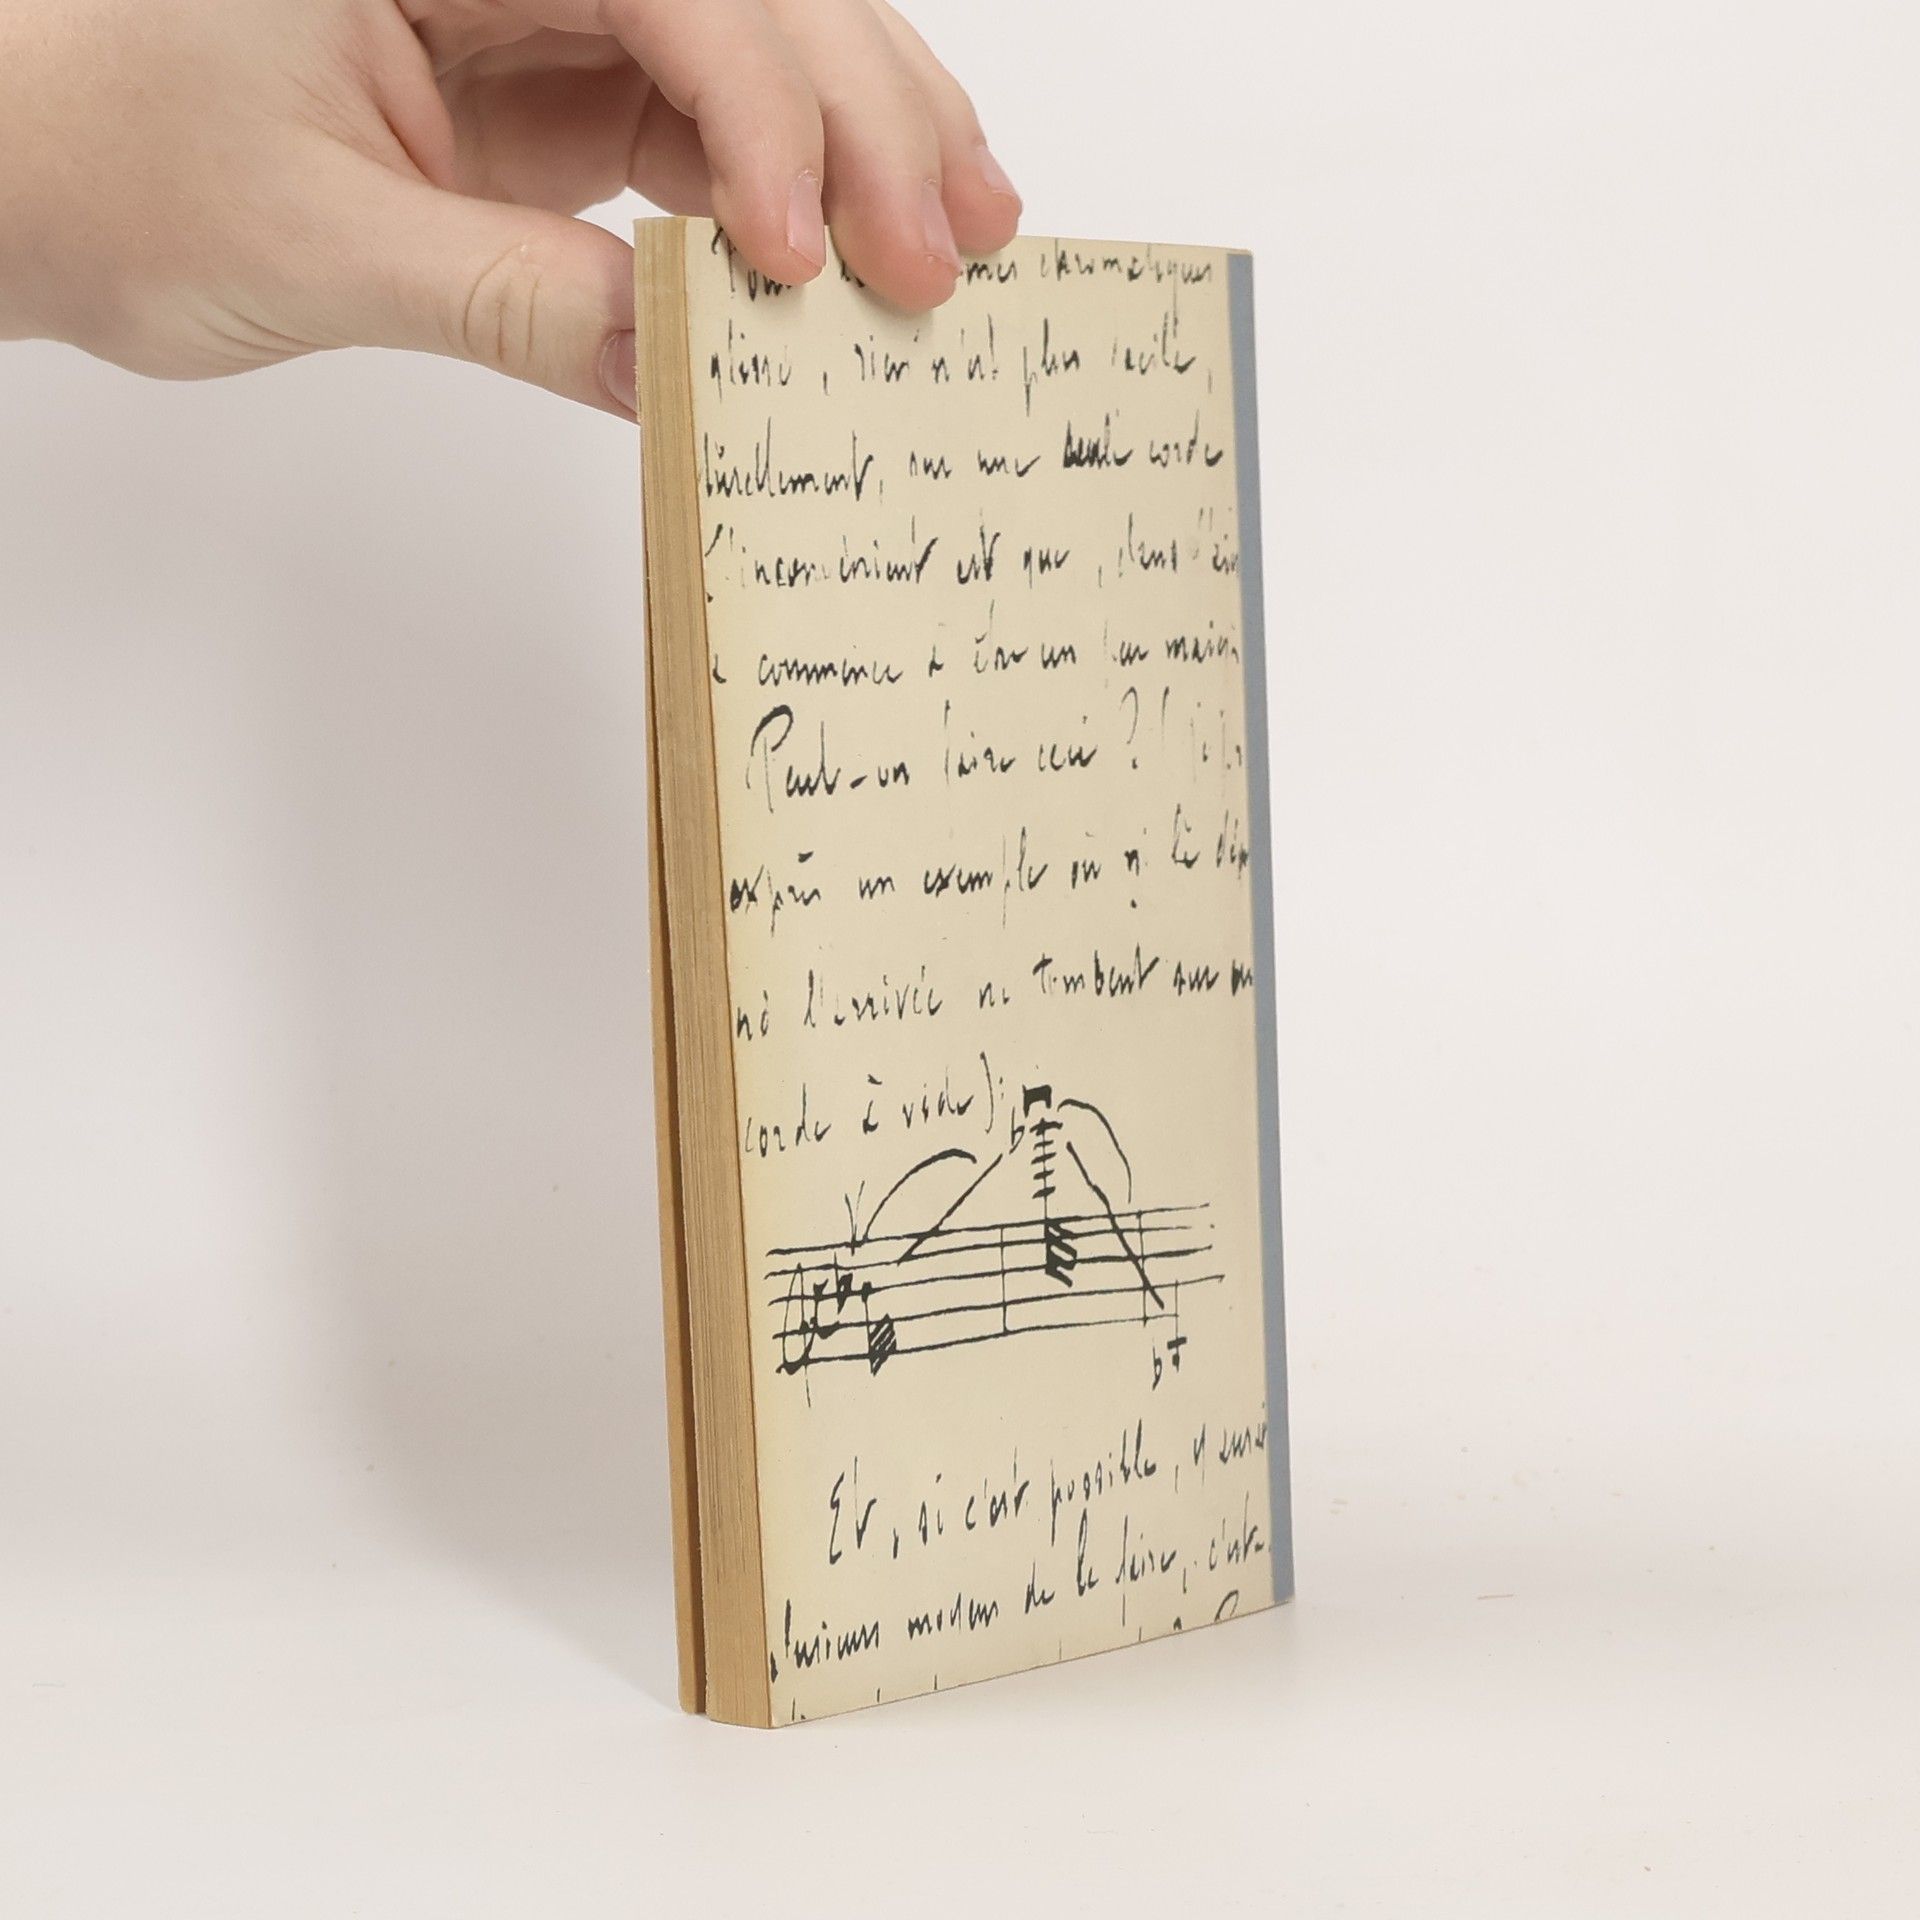 Pour mes chromatiques
glissé, rien n'est plus facile,
turellement, sur une seule corde
L'inconvénient est que, dans l'aig
commence à être un peu maigr
Peut-on faire ceci ? (
exprès un exemple où ni le dép
ni l'arrivée ne tombent sur un
corde à vide) :
Et, si c'est possible, y aurait
plusieurs moyens de le faire, c'est-